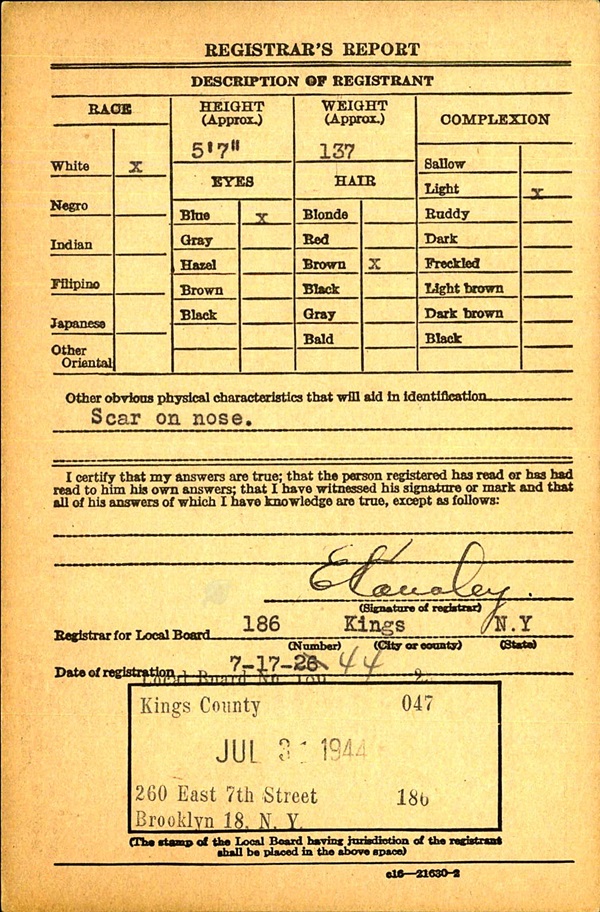 REGISTRAR'S REPORT
DESCRIPTION OF REGISTRANT
RACE
HEIGHT
(Approx.)
WEIGHT
(Approx.)
COMPLEXION
5'7"
137
White x
EYES
HAIR
Sallow
Light x
Negro
Blue x
Blonde
Ruddy
Gray
Red
Dark
Indian
Hazel
Brown X
Freckled
Filipino
Brown
Black
Light brown
Black
Gray
Dark brown
Japanese
Bald
Black
Other
Oriental
Other obvious physical characteristics that will aid in identification
Scar on nose.
I certify that my answers are true; that the person registered has read or has had
read to him his own answers; that I have witnessed his signature or mark and that
all of his answers of which I have knowledge are true, except as follows:
(Signature of registrar)
Registrar for Local Board 186 Kings N.Y
(Number) (City or county) (State)
Date of registration 7-17-26 44
Local Board No. 186 2
Kings County 047
JUL 31 1944
260 East 7th Street 186
Brooklyn 18, N. Y.
(The stamp of the Local Board having jurisdiction of the registrant
shall be placed in the above space)
c16—21630-2